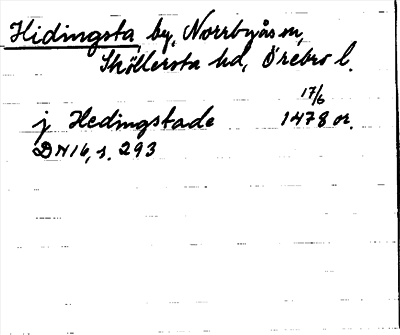 Hidingsta by, Norrbyås sn,
Sköllersta hd, Örebro l.
17/6
j Hedingstade 1478 or.
DN16, s. 293